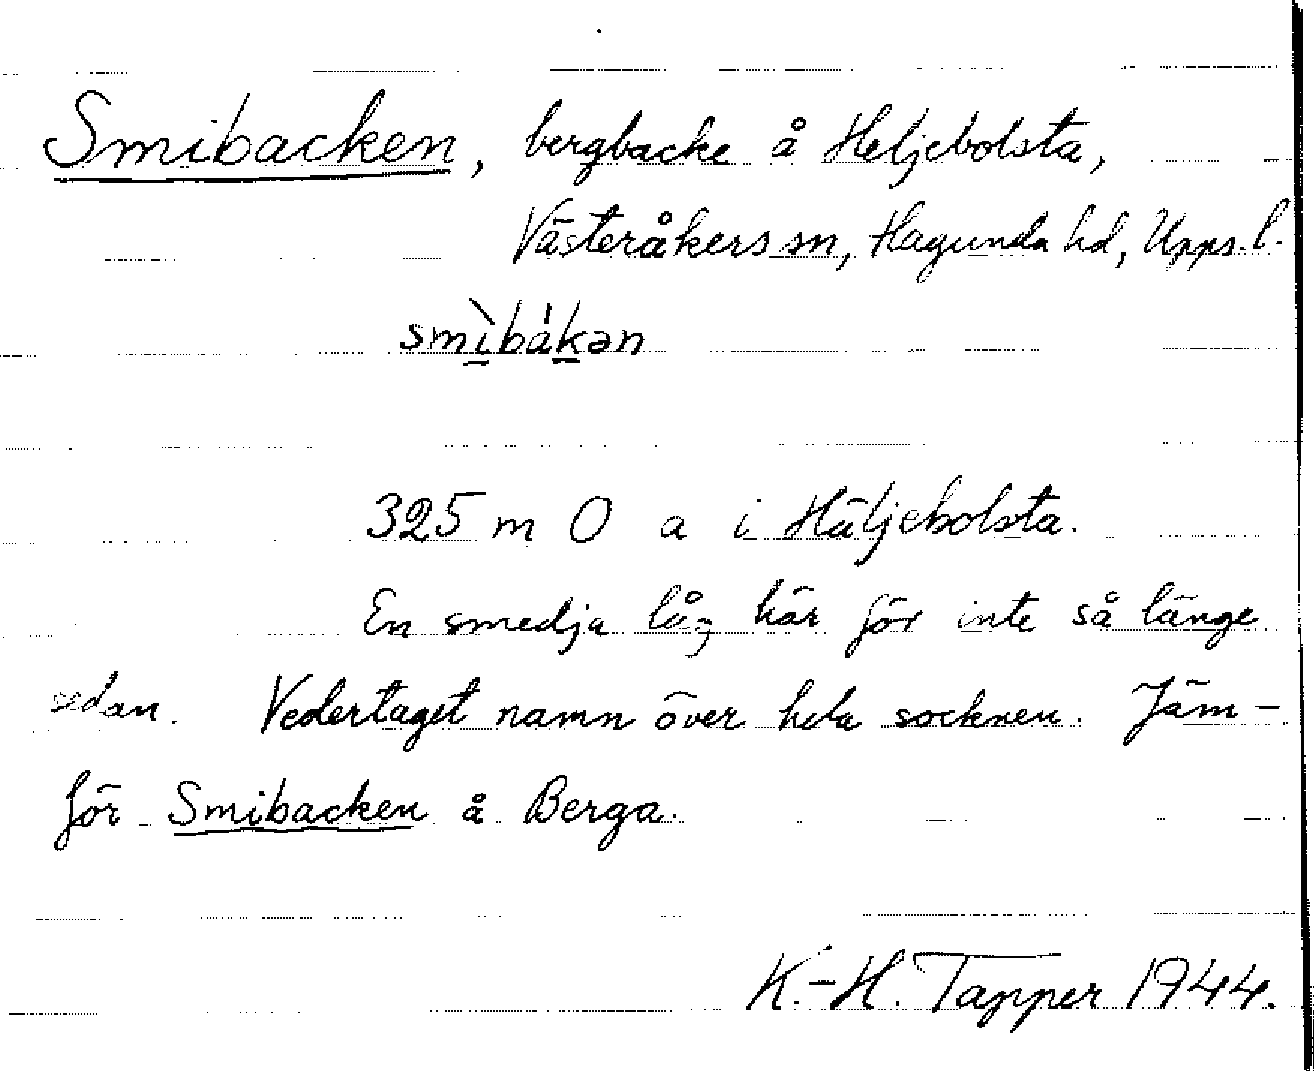 Smibacken, bergbacke å Heljebolsta,
Västeråkers sn, Hagunda hd, Upps. l.
smìbákən
325 m O a i Häljebolsta.
En smedja låg här för inte så länge
sedan. Vedertaget namn över hela socknen. Jäm-
för Smibacken å Berga.
K.-H. Tapper 1944.